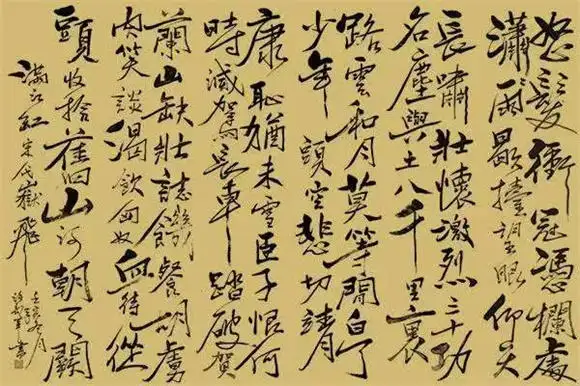 怒髮衝冠憑欄處
瀟雨歇擡望眼仰天
長嘯壯懷激烈三十功
名塵與土八千裏
路雲和月莫等閒白了
少年頭空悲切靖
康恥猶未雪臣子恨何
時滅駕長車踏破賀
蘭山缺壯誌饑餐胡虜
肉笑談渴飲匈奴血待從
頭收拾舊山河朝天闕
滿江紅宋代嶽飛